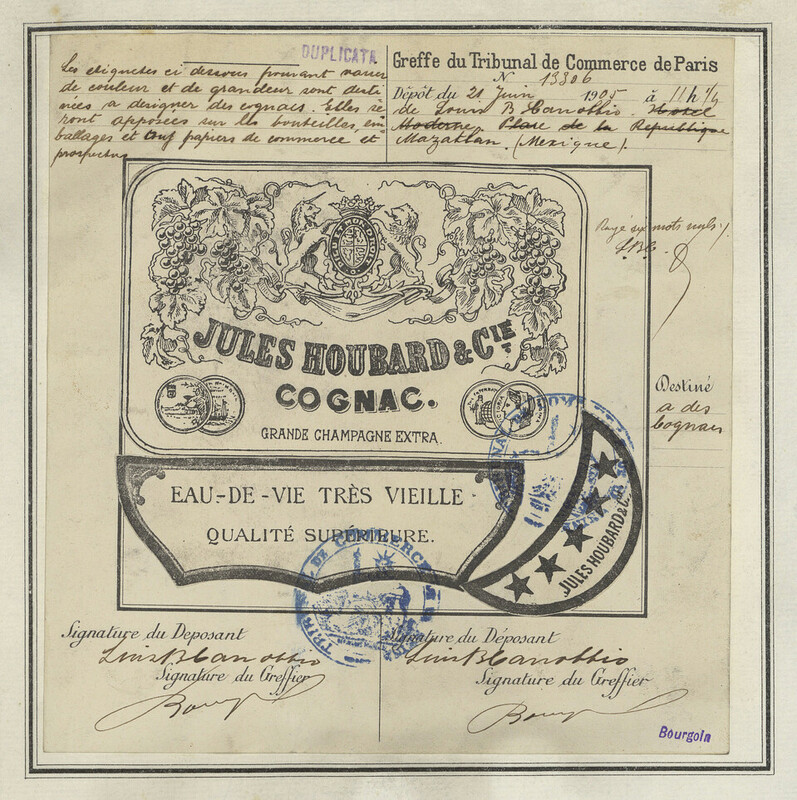 DUPLICATA
Les etiquettes ci dessous pouvant varier
de couleur et de grandeur sont desti
nées a designer des cognacs. Elles se
ront apposées sur les bouteilles, em
ballages et papiers de commerce et
prospectus
Greffe du Tribunal de Commerce de Paris
N 13306
Dépôt du 21 Juin 1905 à 11h
de Louis B Canobbio Hotel
Moderne Place de la République
Mazatlan. (Mexique).
Rayé six mots nuls
LBC
JULES HOUBARD & CIE
COGNAC.
GRANDE CHAMPAGNE EXTRA.
Destiné
a des
Cognacs
EAU-DE-VIE TRÈS VIEILLE
QUALITÉ SUPÉRIEURE.
JULES HOUBARD & Cie
Signature du Déposant
Louis B Canobbio
Signature du Greffier
Signature du Déposant
Louis B Canobbio
Signature du Greffier
Bourgoin